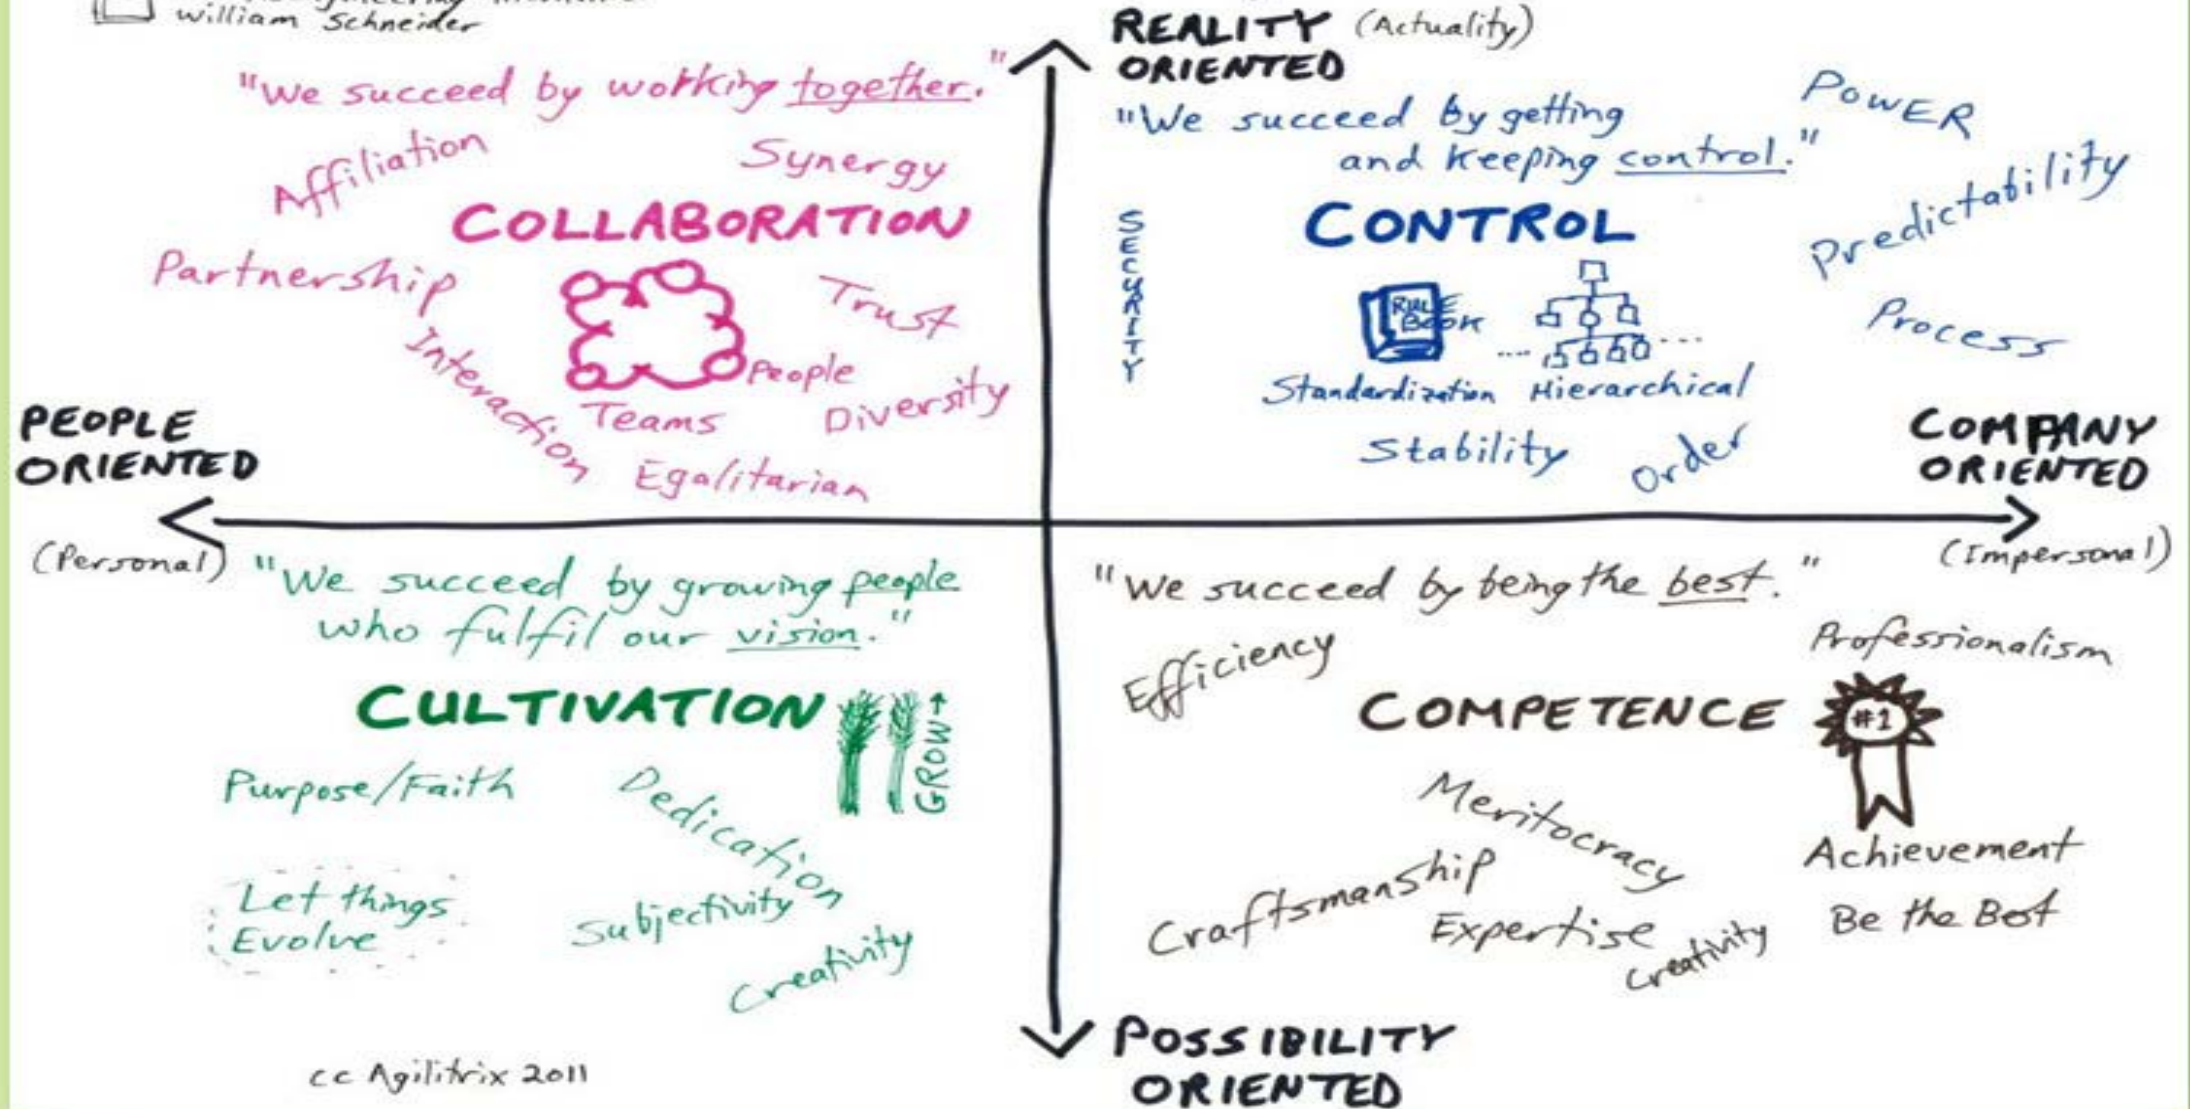 William Schneider
REALITY (Actuality)
ORIENTED
"We succeed by working together."
Affiliation
Synergy
COLLABORATION
Partnership
Trust
Interaction
People
Teams
Diversity
Egalitarian
"We succeed by getting
and keeping control."
POWER
Predictability
SECURITY
CONTROL
RULE
BOOK
Process
Standardization Hierarchical
Stability
Order
PEOPLE
ORIENTED
(Personal)
COMPANY
ORIENTED
(Impersonal)
"We succeed by growing people
who fulfil our vision."
CULTIVATION
GROW
Purpose/Faith
Dedication
Let things
Evolve
Subjectivity
Creativity
"We succeed by being the best."
Efficiency
Professionalism
COMPETENCE
#1
Meritocracy
Achievement
Craftsmanship
Expertise
Creativity
Be the Best
POSSIBILITY
ORIENTED
cc Agilitrix 2011